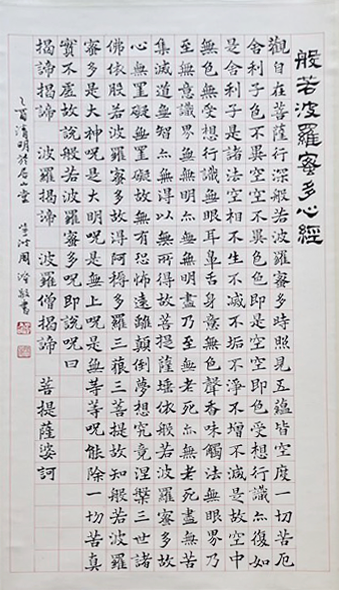 般若波羅蜜多心經
觀自在菩薩行深般若波羅蜜多時照見五蘊皆空度一切苦厄
舍利子色不異空空不異色色即是空空即是色受想行識亦復如
是舍利子是諸法空相不生不滅不垢不淨不增不減是故空中
無色無受想行識無眼耳鼻舌身意無色聲香味觸法無眼界乃
至無意識界無無明亦無無明盡乃至無老死亦無老死盡無苦
集滅道無智亦無得以無所得故菩提薩埵依般若波羅蜜多故
心無罣礙無罣礙故無有恐怖遠離顛倒夢想究竟涅槃三世諸
佛依般若波羅蜜多故得阿耨多羅三藐三菩提故知般若波羅
蜜多是大神呪是大明呪是無上呪是無等等呪能除一切苦真
實不虛故說般若波羅蜜多呪即說呪曰
揭諦揭諦 波羅揭諦 波羅僧揭諦 菩提薩婆訶
乙酉清明於石山堂 周 敬書